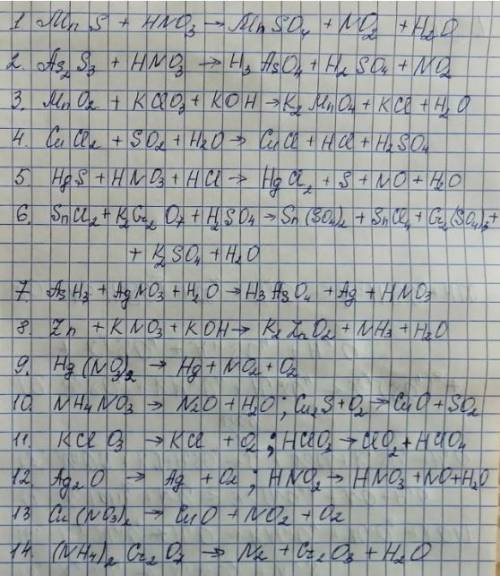 1. MnS + HNO3 → MnSO4 + NO2 + H2O
2. As2S3 + HNO3 → H3AsO4 + H2SO4 + NO2
3. MnO2 + KClO3 + KOH → K2MnO4 + KCl + H2O
4. CuCl2 + SO2 + H2O → CuCl + HCl + H2SO4
5. HgS + HNO3 + HCl → HgCl2 + S + NO + H2O
6. SnCl2 + K2Cr2O7 + H2SO4 → Sn(SO4)2 + SnCl4 + Cr2(SO4)3 +
+ K2SO4 + H2O
7. AsH3 + AgNO3 + H2O → H3AsO4 + Ag + HNO3
8. Zn + KNO3 + KOH → K2ZnO2 + NH3 + H2O
9. Hg(NO3)2 → Hg + NO2 + O2
10. NH4NO3 → N2O + H2O; Cu2S + O2 → CuO + SO2
11. KClO3 → KCl + O2; HClO3 → ClO2 + HClO4
12. Ag2O → Ag + O2; HNO2 → HNO3 + NO + H2O
13. Cu(NO3)2 → CuO + NO2 + O2
14. (NH4)2Cr2O7 → N2 + Cr2O3 + H2O